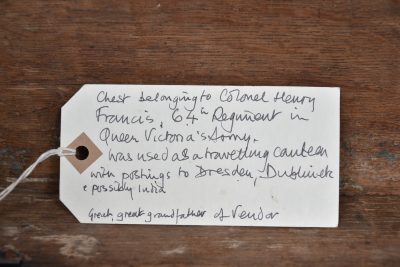 Chest belonging to Colonel Henry
Francis, 64th Regiment in
Queen Victoria's Army.
Was used as a travelling canteen
with postings to Dresden,
& possibly India
Great, great grandfather of Vendor